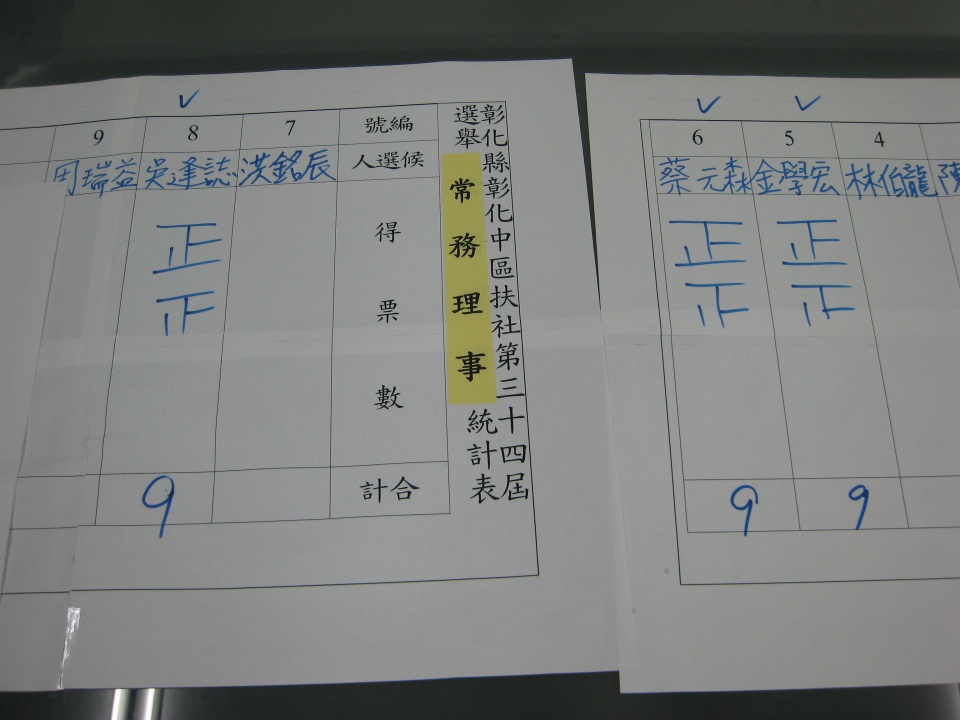 彰化縣彰化中區扶社第三十四屆
選舉常務理事統計表
編號 7 8 9
候選人 洪銘辰 吳逢誌 周瑞益
得票數 正正
合計 9
4 5 6
林伯龍 金學宏 蔡元森
正正 正正
9 9